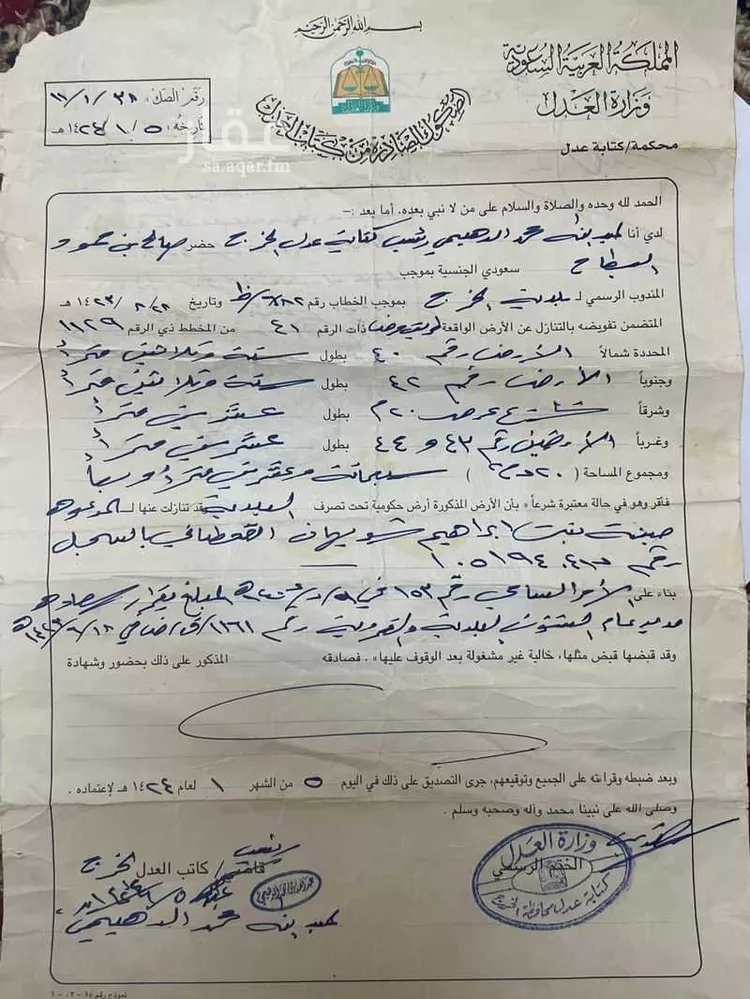 بسم الله الرحمن الرحيم
المملكة العربية السعودية
وزارة العدل
محكمة/ كتابة عدل
الصكوك الصادرة من كتابات العدل
رقم الصك: ٣٨ / ١ / ١١
تاريخه: ٥ / ١ / ١٤٢٤ هـ
عقار
sa.aqar.fm
الحمد لله وحده والصلاة والسلام على من لا نبي بعده، أما بعد :-
لدي أنا عبد الله محمد الدهيمي رئيس كتابة عدل الخرج حضر صالح بن حمود
السطاح سعودي الجنسية بموجب
المندوب الرسمي لـ بلدية الخرج بموجب الخطاب رقم وتاريخ ١٤٢٣ هـ
المتضمن تفويضه بالتنازل عن الأرض الواقعة ذات الرقم ٤١ من المخطط ذي الرقم ١١٢٩
المحددة شمالاً الأرض رقم ٤٠ بطول ستة وثلاثين متراً
وجنوباً الأرض رقم ٤٢ بطول ستة وثلاثين متراً
وشرقاً شارع عرض ٢٠م بطول عشرين متراً
وغرباً الأرضين رقم ٤٣ و ٤٤ بطول عشرين متراً
ومجموع المساحة (٧٢٠م٢) سبعمائة وعشرين متراً مربعاً
فأقر وهو في حالة معتبرة شرعاً « بأن الأرض المذكورة أرض حكومية تحت تصرف البلدية قد تنازلت عنها لـ
بنت ابراهيم القحطاني بالسجل
رقم
بناء على الأمر السامي رقم ١٥٣ في المبلغ بقرار سعادة
مدير عام الشئون البلدية والقروية رقم
وقد قبضها قبض مثلها، خالية غير مشغولة بعد الوقوف عليها» . فصادقه المذكور على ذلك بحضور وشهادة
وبعد ضبطه وقراءته على الجميع وتوقيعهم، جرى التصديق على ذلك في اليوم ٥ من الشهر ١ لعام ١٤٢٤ هـ لاعتماده .
وصلى الله على نبينا محمد وآله وصحبه وسلم .
رئيس
قاضي / كاتب العدل الخرج
عبد الله محمد الدهيمي
وزارة العدل
الختم الرسمي
كتابة عدل محافظة الخرج